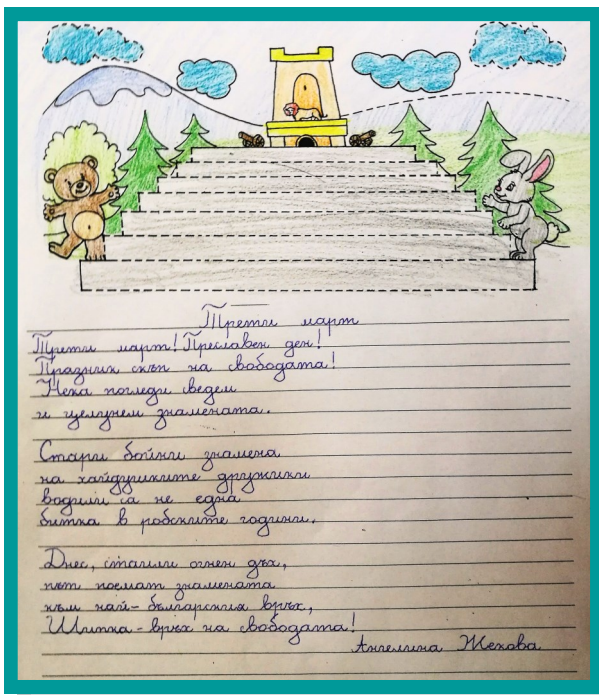 Трети март
Трети март! Преславен ден!
Празник скъп на свободата!
Нека погледи сведем
и целунем знамената.
Стари бойни знамена
на хайдушките дружини
водили са не една
битка в робските години.
Днес, стаили огнен дъх,
път поемат знамената
към най-българския връх,
Шипка - връх на свободата!
Ангелина Жекова